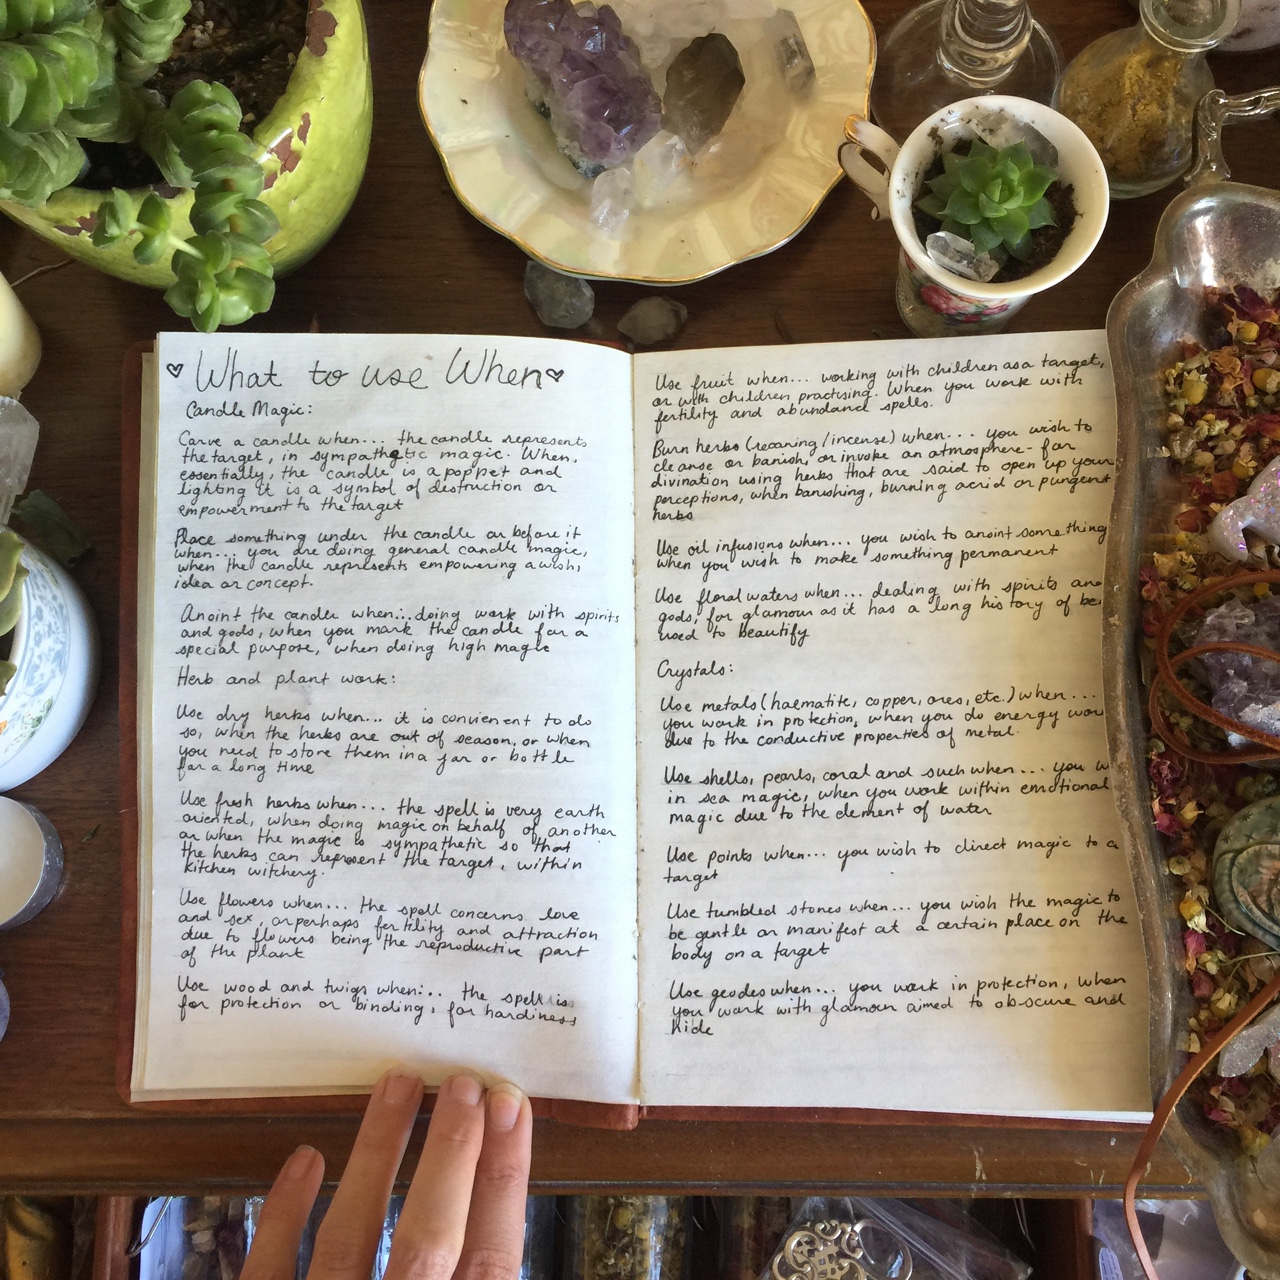 What to use When
Candle Magic:
Carve a candle when... the candle represents
the target, in sympathetic magic. When,
essentially, the candle is a poppet and
lighting it is a symbol of destruction or
empowerment to the target
Place something under the candle or before it
when... you are doing general candle magic,
when the candle represents empowering a wish,
idea or concept.
Anoint the candle when... doing work with spirits
and gods, when you mark the candle for a
special purpose, when doing high magic
Herb and plant work:
Use dry herbs when... it is convienent to do
so, when the herbs are out of season, or when
you need to store them in a jar or bottle
for a long time
Use fresh herbs when... the spell is very earth
oriented, when doing magic on behalf of another
or when the magic is sympathetic so that
the herbs can represent the target, within
kitchen witchery.
Use flowers when... the spell concerns love
and sex, or perhaps fertility and attraction
due to flowers being the reproductive part
of the plant
Use wood and twigs when... the spell is
for protection or binding, for hardiness
Use fruit when... working with children as a target,
or with children practising. When you work with
fertility and abundance spells.
Burn herbs (recaning/incense) when... you wish to
cleanse or banish, or invoke an atmosphere - for
divination using herbs that are said to open up your
perceptions, when banishing, burning acrid or pungent
herbs
Use oil infusions when... you wish to anoint something
when you wish to make something permanent
Use floral waters when... dealing with spirits and
gods, for glamour as it has a long history of bei
used to beautify
Crystals:
Use metals (haematite, copper, ores, etc.) when...
you work in protection, when you do energy wor
due to the conductive properties of metal.
Use shells, pearls, coral and such when... you w
in sea magic, when you work within emotional
magic due to the element of water
Use points when... you wish to direct magic to a
target
Use tumbled stones when... you wish the magic to
be gentle or manifest at a certain place on the
body on a target
Use geodes when... you work in protection, when
you work with glamour aimed to obscure and
hide